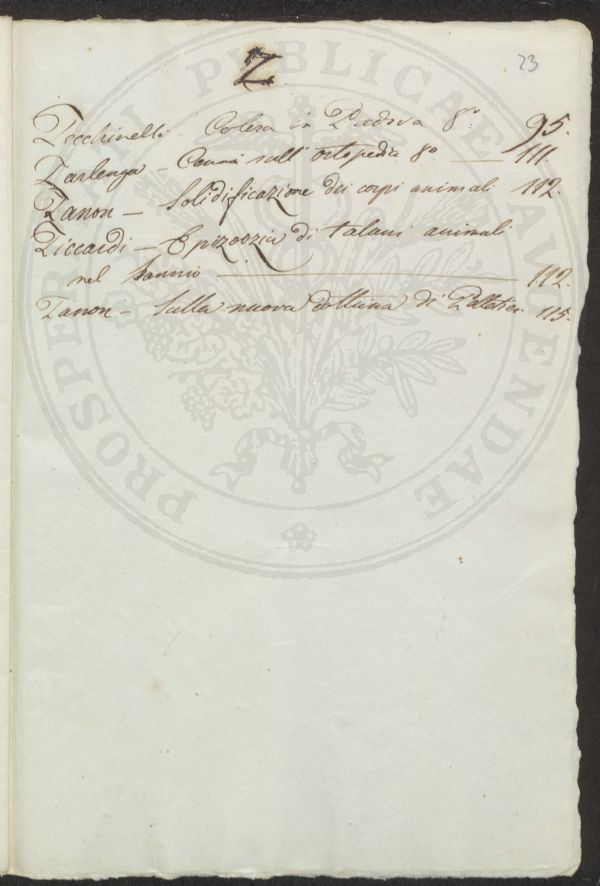 Z
23
Zecchinelli - Colera in Padova 8° 95.
Zarlenga - Cenni sull' ortopedia 8° — 111
Zanon — Solidificazione dei corpi animali 112.
Ziccardi — Epizoozia di taluni animali
nel Sannio — 112.
Zanon - Sulla nuova dottrina di 115.
PROSPERITATI PUBLICAE AVGENDAE